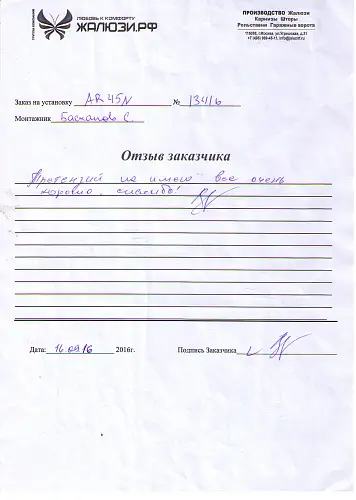 ЛЮБОВЬ К КОМФОРТУ
ЖАЛЮЗИ.РФ
ПРОИЗВОДСТВО Жалюзи
Карнизы Шторы
Рольставни Гаражные ворота
Заказ на установку AR45N № 13416
Монтажник Басканов С.
Отзыв заказчика
Претензий не имею все очень
хорошо, спасибо!
Дата: 16.09.16 2016г. Подпись Заказчика